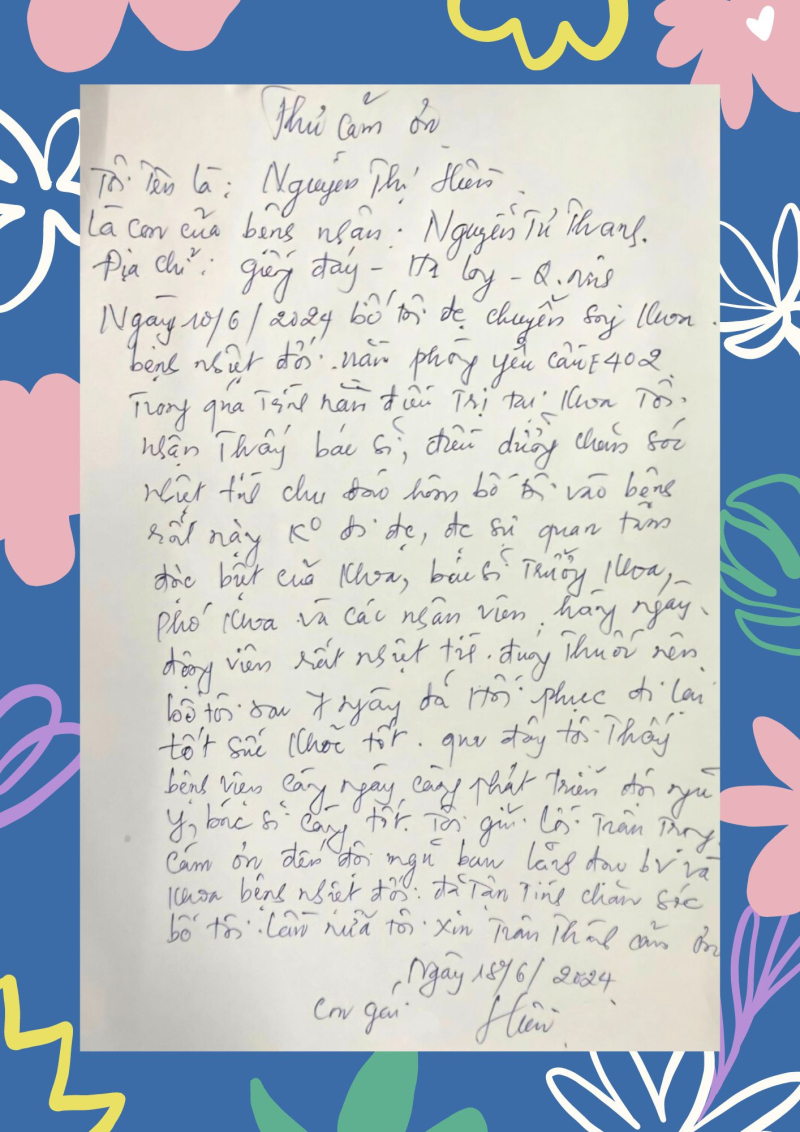 Thư cảm ơn
Tôi tên là: Nguyễn Thị Hiền
Là con của bệnh nhân: Nguyễn Tử Thang.
Địa chỉ: giếng đáy - Hạ long - Q. ninh
Ngày 10/6/2024 bố tôi đc chuyển sang khoa
bệnh nhiệt đới. nằm phòng yêu cầu F402.
Trong quá trình nằm điều trị tại khoa Tôi
nhận Thấy bác sĩ, điều dưỡng chăm sóc
nhiệt tình chu đáo hôm bố tôi vào bệnh
rất nặng K° đi đc, đc sự quan tâm
đặc biệt của khoa, bác sĩ Trưởng khoa,
phó khoa và các nhân viên hàng ngày
động viên rất nhiệt tình. đúng Thuốc nên
bố tôi sau 7 ngày đã Hồi phục đi lại
tốt sức khỏe tốt. qua đây tôi Thấy
bệnh viện càng ngày càng phát Triển đội ngũ
y, bác sĩ càng tốt. Tôi gửi lời Trân Trọng
cảm ơn đến đội ngũ ban lãnh đạo bv và
khoa bệnh nhiệt đới: đã Tận Tình chăm sóc
bố tôi. Lần nữa tôi xin Trân Thành cảm ơn
Ngày 18/6/2024
con gái Hiền